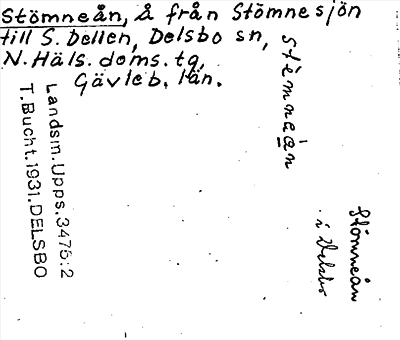 Stömneån, Å från Stömnesjön
till S. Dellen, Delsbo sn,
N. Häls. doms. tg,
Gävleb. län.
stèmneàn
Landsm. Upps. 3475:2
T. Bucht. 1931. DELSBO
Stömneån
i Delsbo